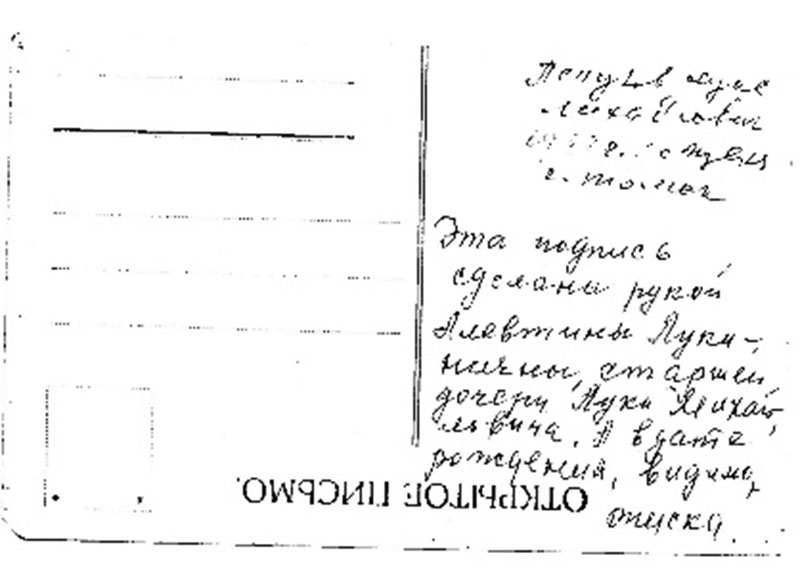 Михайлович
г. Томск
Эта подпись
сделана рукой
Алевтины Луки-
ничны, старшей
дочери Луки Михай-
ловича. А в дате
рождения, видимо,
описка.
ОТКРЫТОЕ ПИСЬМО.